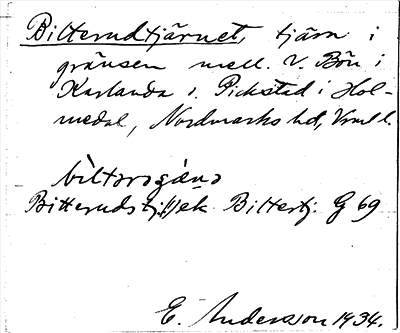 Bitterudtjärnet, tjärn i
gränsen mell. V. Bön i
Karlanda o. Pickstad i Hol-
medal, Nordmarks hd, Vrml.
Bitterudstj. ek. Bittertj. G 69
E. Andersson 1934.